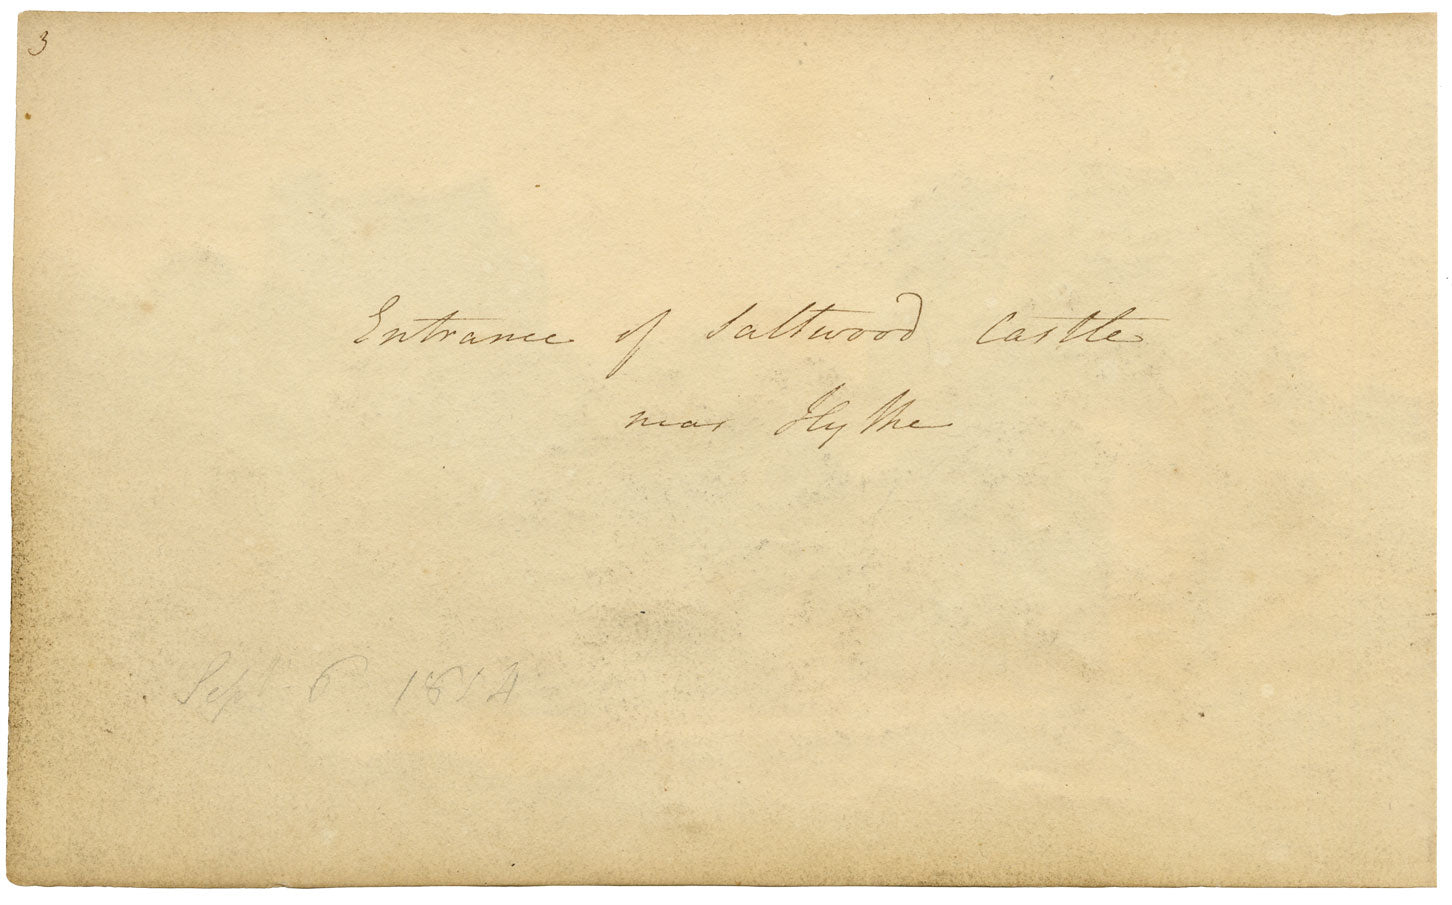 3
Entrance of Saltwood Castle
near Hythe
Sept 6 1814